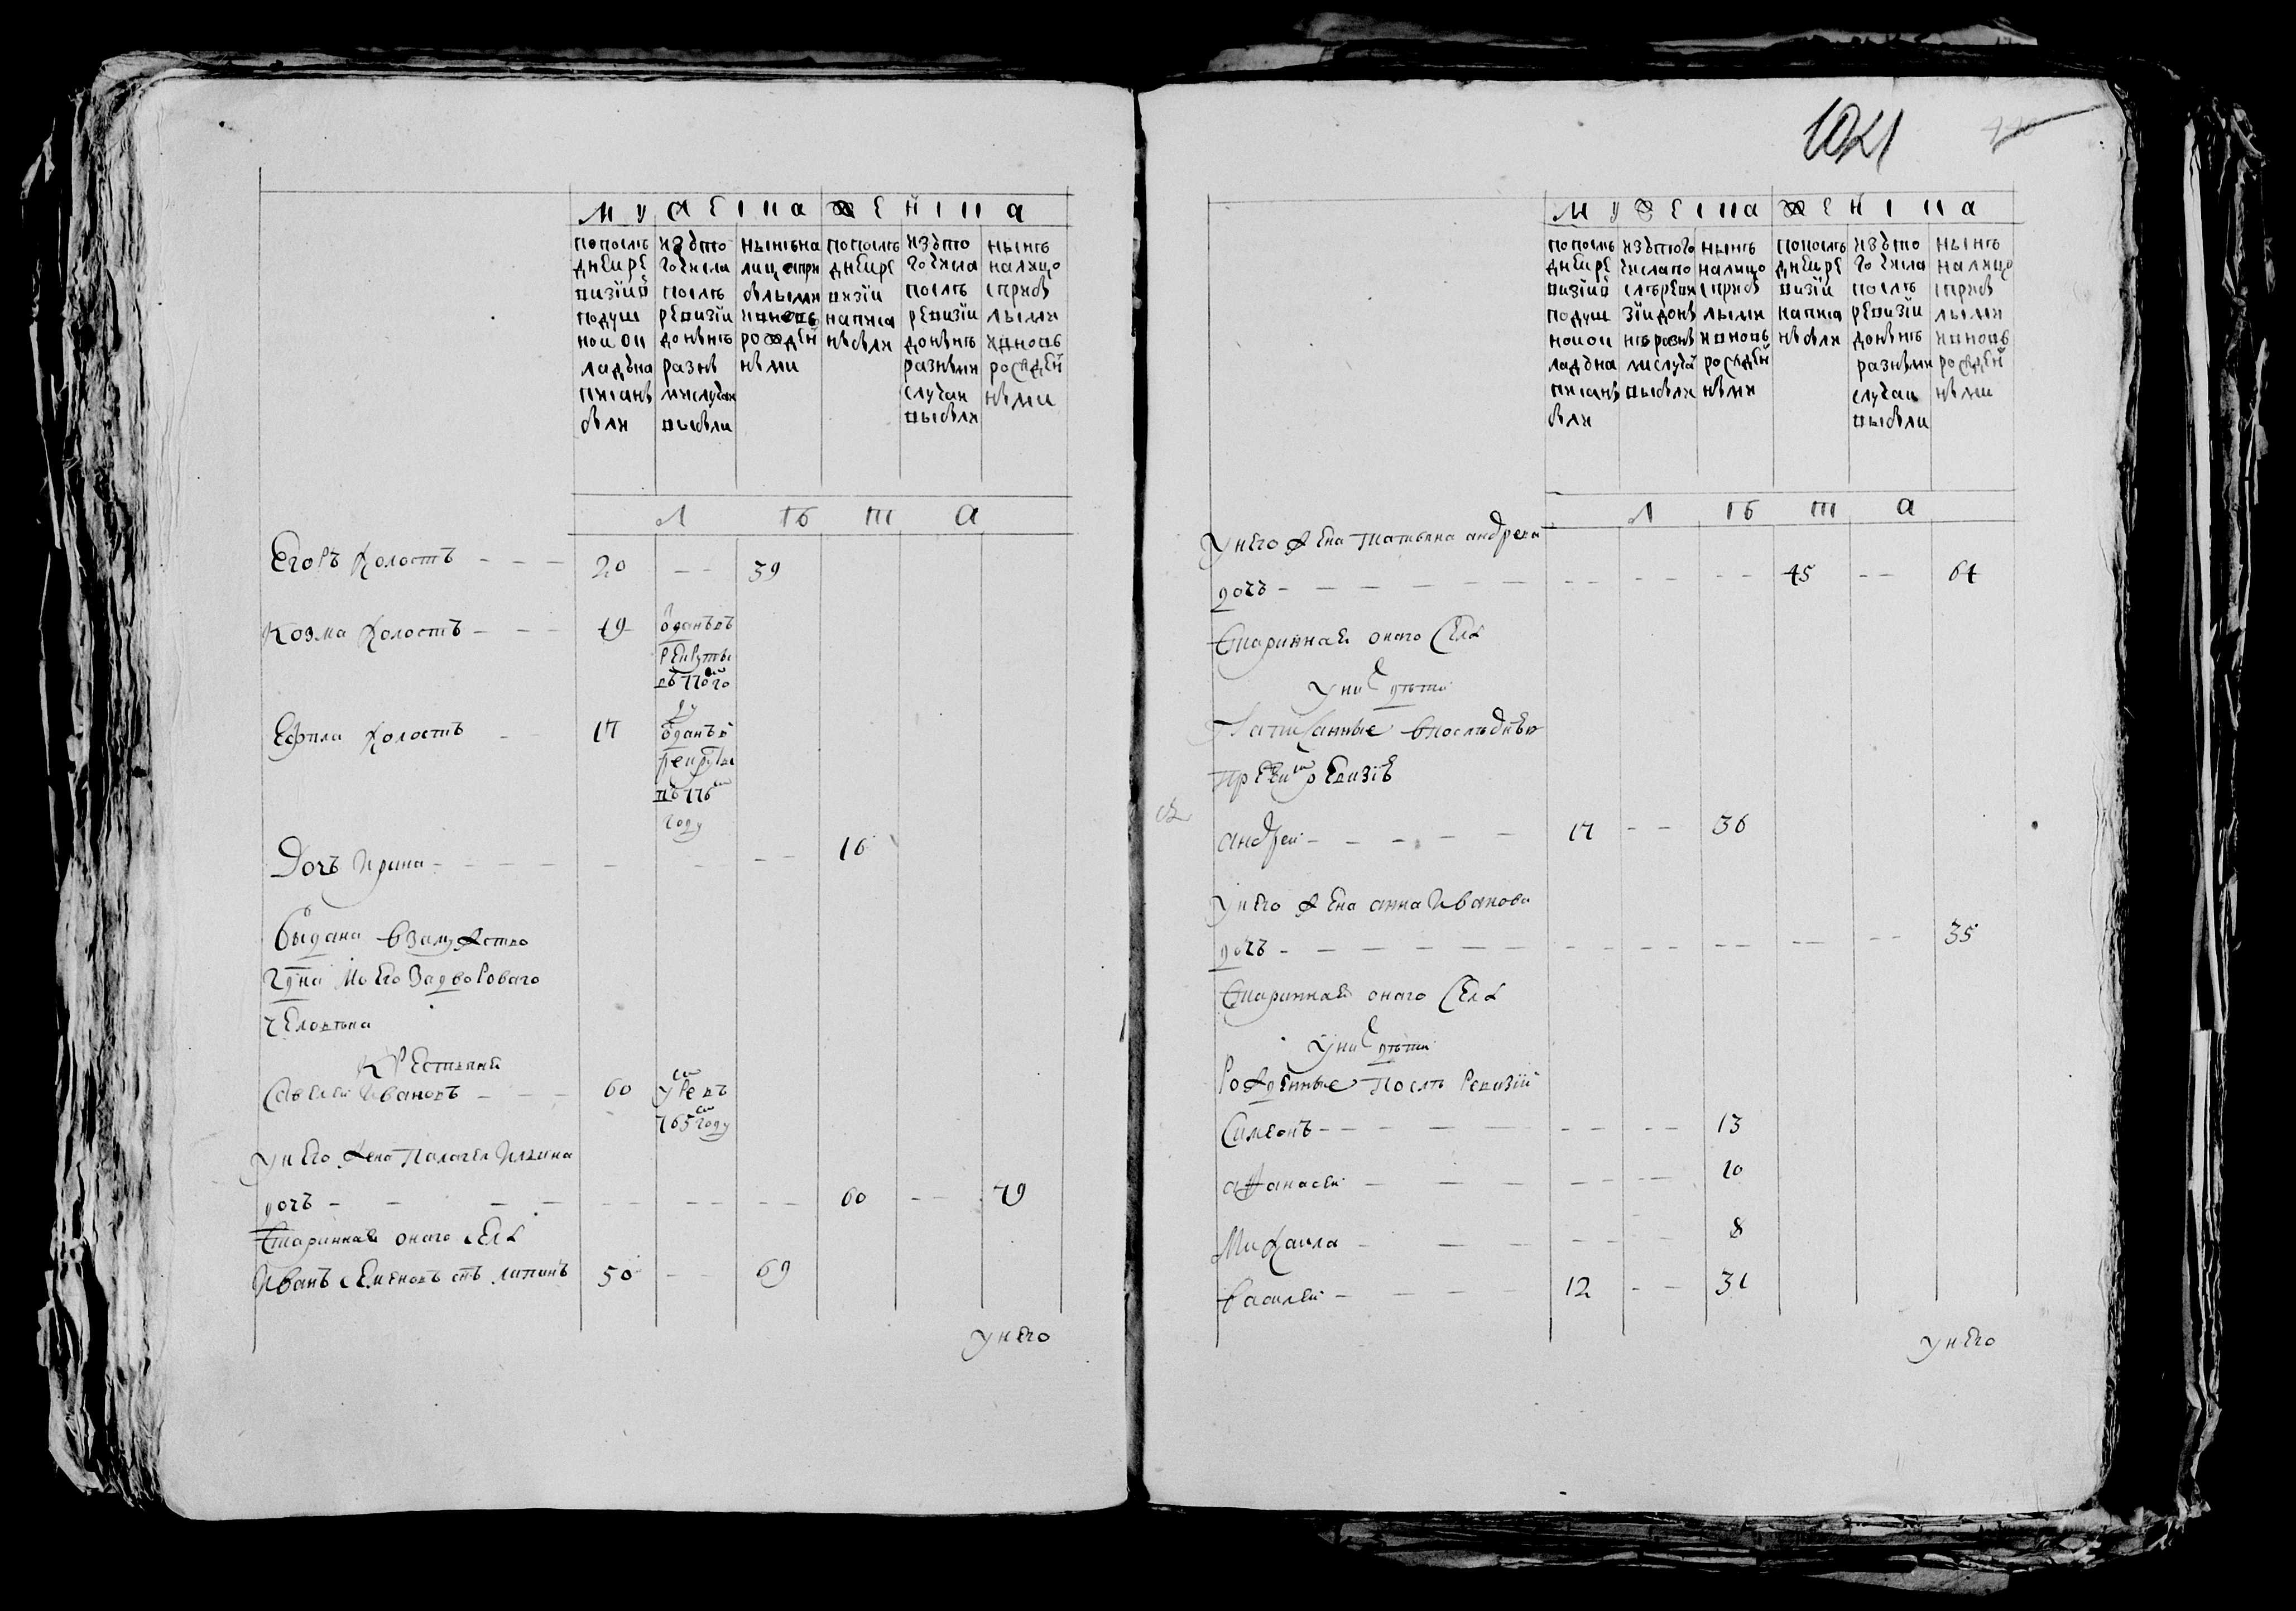 мужеска женска
попослѣ днеи ре визїи в подуш нои ок ладъ на писанѣ бѣли
изъ то го числа послѣ ревизїи до нынѣ разнѣ ми случаи выбѣли
нынѣ на лицо спри бѣлыми и вновь рожден нѣми
попослѣ днеи ре визїи написа нѣ бѣли
изъ то го числа послѣ ревизїи до нынѣ разнѣми случаи выбѣли
нынѣ налицо с прибѣ лыми и вновь рожден нѣми
л ѣ т а
Егоръ холостъ 20 39
Козма холостъ 19 ѡданъ въ рекруты въ 770 го ду
холостъ 17 ѡданъ в рекруты въ 776 году
Дочь Ирина 16
выдана взамужство
задвороваго
человѣка
Крестьяня
Савелеи Ивановъ 60 умре въ 765 году
унего жена Палагея Ильина
дочь 60 79
Старинная онаго села
Иванъ Семеновъ снъ 50 69
унего
1021
мужеска женска
попослѣ днеи ре визїи в подуш нои ок ладъ на писанѣ бѣли
изъ того числа по слѣ реви зїи до нѣ нѣ разнѣ ми случаи выбѣли
нынѣ налицо с прибѣ лыми и вновь рожден нѣми
попослѣ днеи ре визїи написа нѣ бѣли
изъ то го числа послѣ ревизїи до нынѣ разнѣми случаи выбѣли
нынѣ налицо с прибѣ лыми и вновь рожден нѣми
л ѣ т а
унего жена Татьяна андреева
дочь 45 64
Старинная онаго села
уних дѣти
Написанные впослѣднею
пред сим ревизїе
андреи 17 36
унего жена анна Иванова
дочь 35
Старинная онаго села
уних дѣти
Рожденные послѣ ревизїи
Симеонъ 13
афанасеи 10
Михаила 8
василеи 12 31
унего